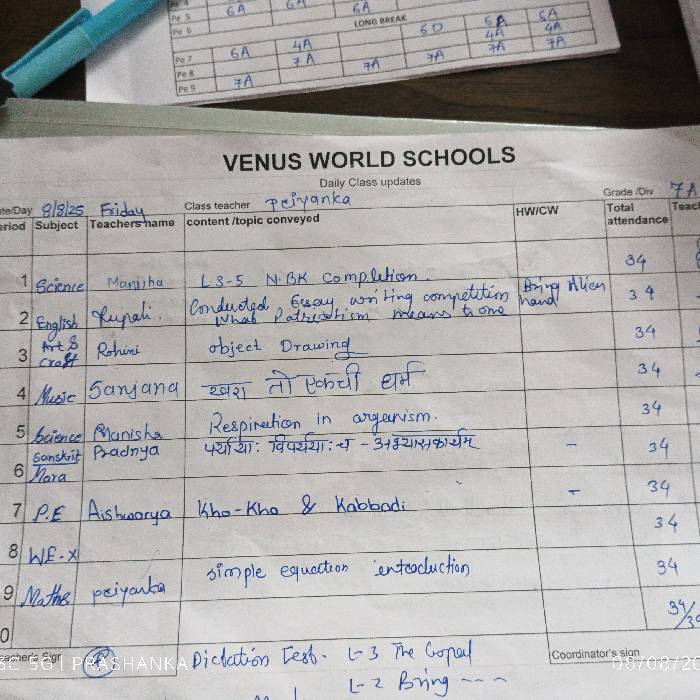 Pe 5 6A 6A 6A
Pe 6 LONG BREAK
Pe 7 6A 4A 6D 6A 6A
Pe 8 7A 4A 4A
Pe 9 7A 7A 7A 7A 7A
VENUS WORLD SCHOOLS
Daily Class updates
Date/Day 8/8/25 Friday Class teacher Priyanka Grade /Div 7A
Period Subject Teachers name content /topic conveyed HW/CW Total attendance
1 Science Manisha LS-5 N.BK Completion 34
2 English Rupali. Conducted Essay writing competition What Patriotism means to one Bring Alien hand 34
3 Art & Craft Rohini object Drawing 34
4 Music Sanjana खरा तो एकची धर्म 34
5 Science Manisha Respiration in organism. 34
6 Sanskrit Mara Pradnya पर्यायाः विपर्ययाः च - अभ्यासकार्यम् - 34
7 P.E Aishwarya Kho-Kho & Kabbadi - 34
8 WE-X 34
9 Maths Priyanka simple equation introduction 34
34/
Teacher's Sign Dictation Test. L-3 The Gopal Coordinator's sign
5G | PRASHANKA L-2 Bring --- 08/08/20